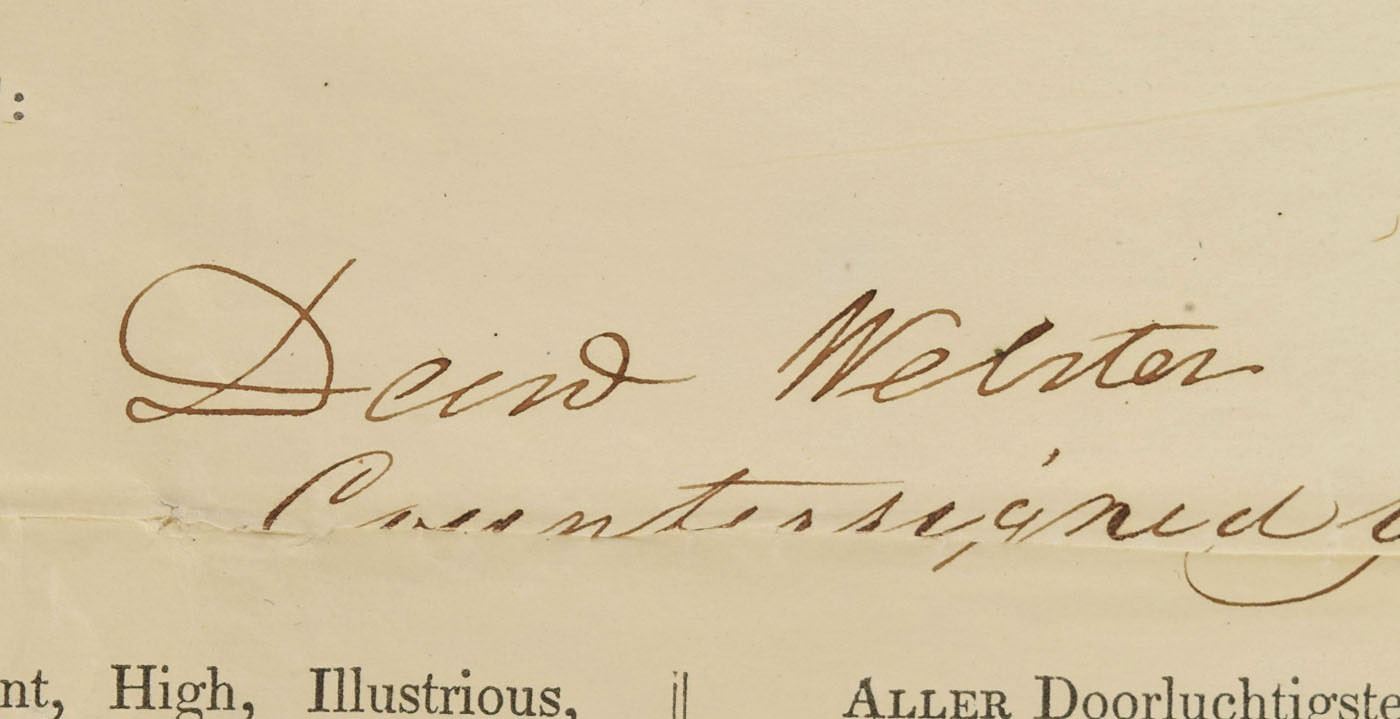 :
Danl Webster
Countersigned
nt, High, Illustrious,
ALLER Doorluchtigste